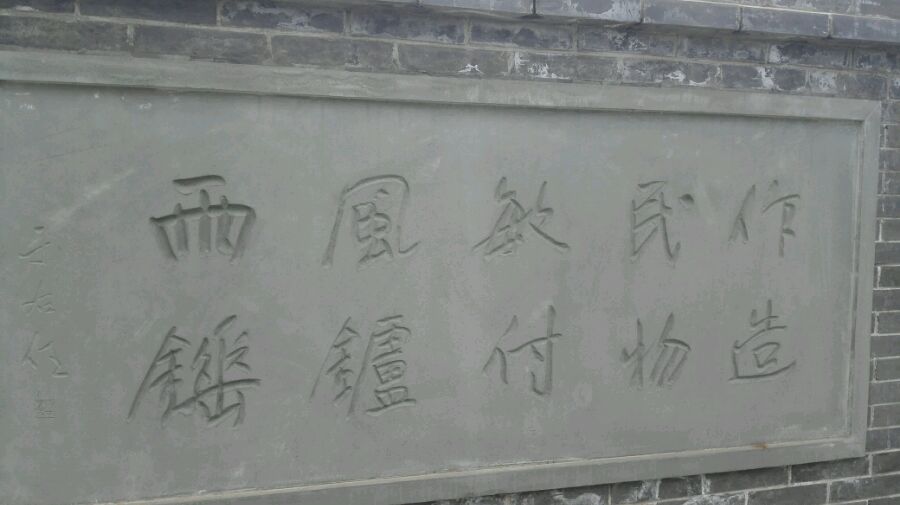 作民敏風雨
造物付鑪錘
于右任